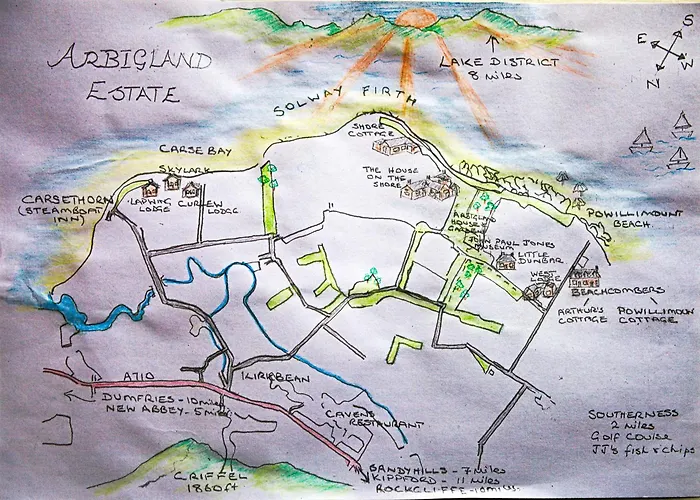 ARBIGLAND
ESTATE
LAKE DISTRICT
8 miles
S
E
W
N
SOLWAY FIRTH
SHORE
COTTAGE
CARSE BAY
SKYLARK
THE HOUSE
ON THE
SHORE
CARSETHORN
(STEAMBOAT
INN)
LAPWING
LODGE
CURLEW
LODGE
ARBIGLAND
HOUSE &
GARDENS
POWILLIMOUNT
BEACH
JOHN PAUL JONES
MUSEUM
LITTLE
DUNBAR
WEST
LODGE
BEACHCOMBERS
ARTHUR'S
COTTAGE
POWILLIMOUN
COTTAGE
A710
KIRKBEAN
DUMFRIES - 10 miles
NEW ABBEY - 5 miles
CAVENS
RESTAURANT
SOUTHERNESS
2 miles
Golf Course
JJ's fish & chips
CRIFFEL
1860ft
SANDYHILLS - 7 miles
KIPPFORD - 11 miles
ROCKCLIFFE